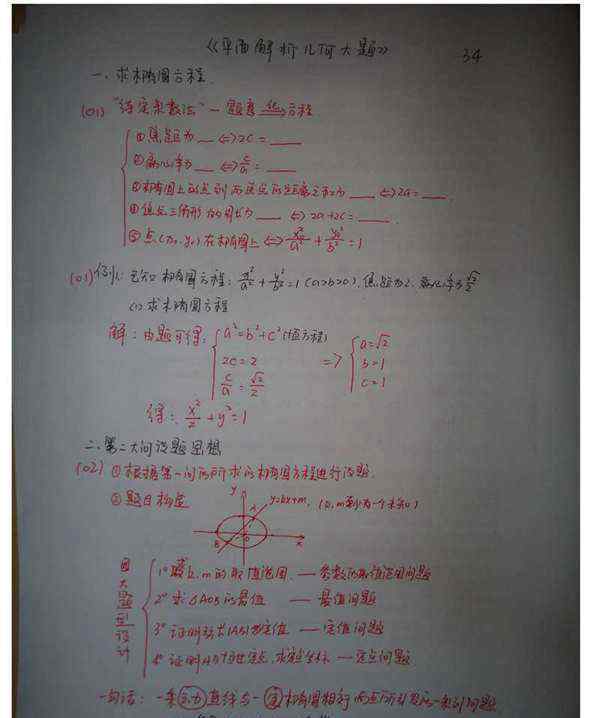 《平面解析几何大题》 34
一、求椭圆方程.
(01) "待定系数法" — 题意 方程
① 焦距为 __ ⇔ 2c = __
② 离心率为 __ ⇔ c/a = __
③ 椭圆上的点到两焦点的距离之和为 __ ⇔ 2a = __.
④ 焦点三角形的周长为 __ ⇔ 2a+2c = __.
⑤ 点(x₀, y₀)在椭圆上 ⇔ x₀²/a² + y₀²/b² = 1
(01) 例1: 已知椭圆方程: x²/a² + y²/b² = 1 (a>b>0), 焦距为2, 离心率为 √2/2
(1) 求椭圆方程
解: 由题可得: { a² = b² + c² (恒方程) 2c = 2 c/a = √2/2 ⇒ { a = √2 b = 1 c = 1
得: x²/2 + y² = 1
二、第二大问设题思想
(02) ① 根据第一问的所求的椭圆方程进行设题.
② 题目构造 y A y=kx+m. (k, m至少为一个未知) B O x
四大题型设计
1° k, m的取值范围. — 参数的取值范围问题
2° 求△AOB的最值 — 最值问题
3° 证明 |AB|为定值 — 定值问题
4° 证明AB恒过定点, 求定点坐标 — 定点问题
一句话: 一条动直线与一定椭圆相行两点所引发的一系列问题